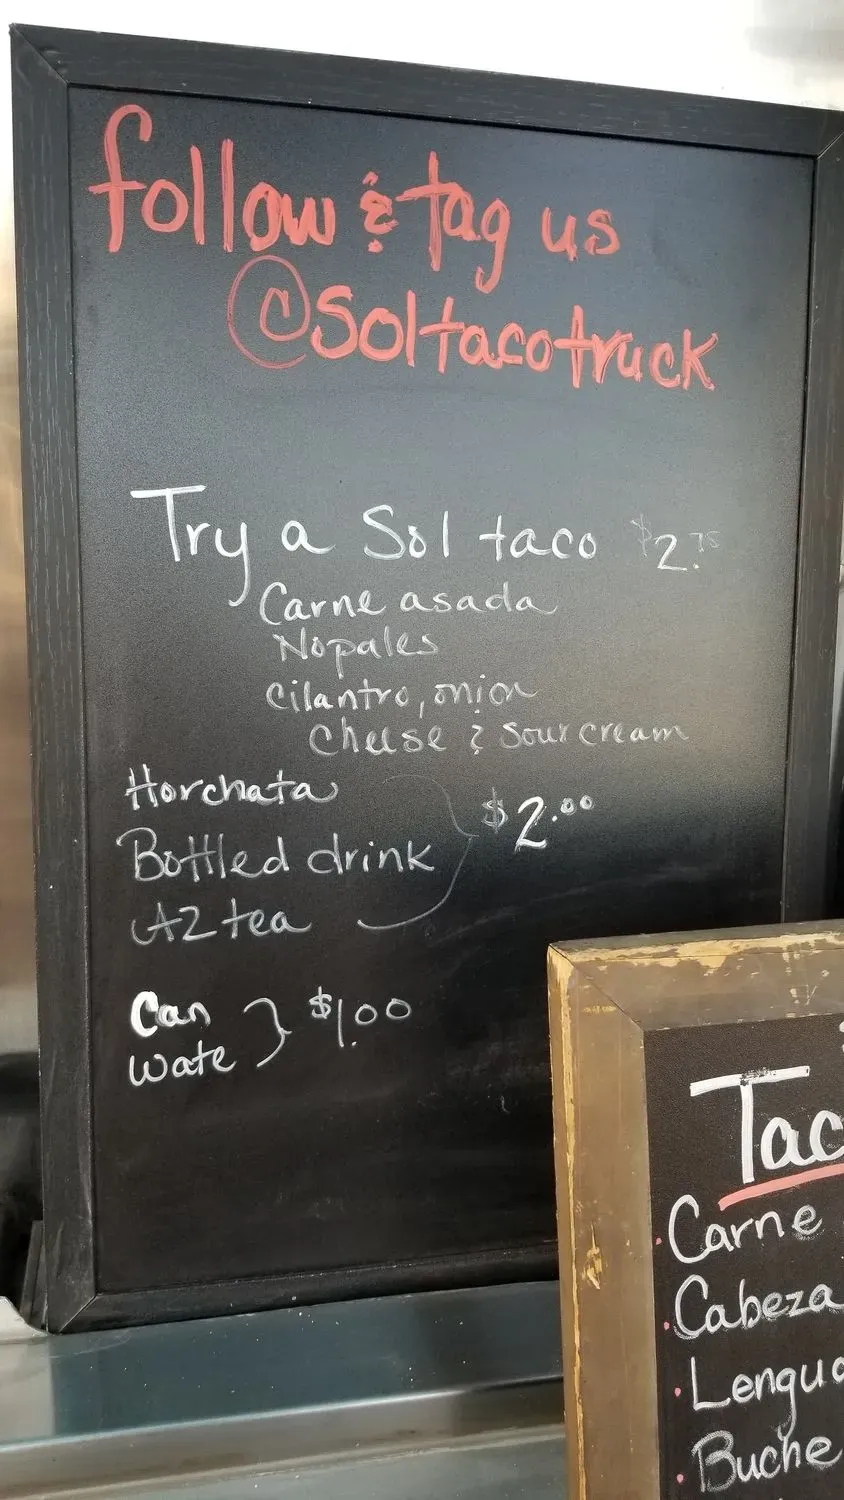 follow & tag us
@soltacotruck
Try a Sol taco $2.75
Carne asada
Nopales
cilantro, onion
cheese & sour cream
Horchata
Bottled drink
AZ tea
$2.00
Can
wate
$1.00
Tac
Carne
Cabeza
Lengua
Buche